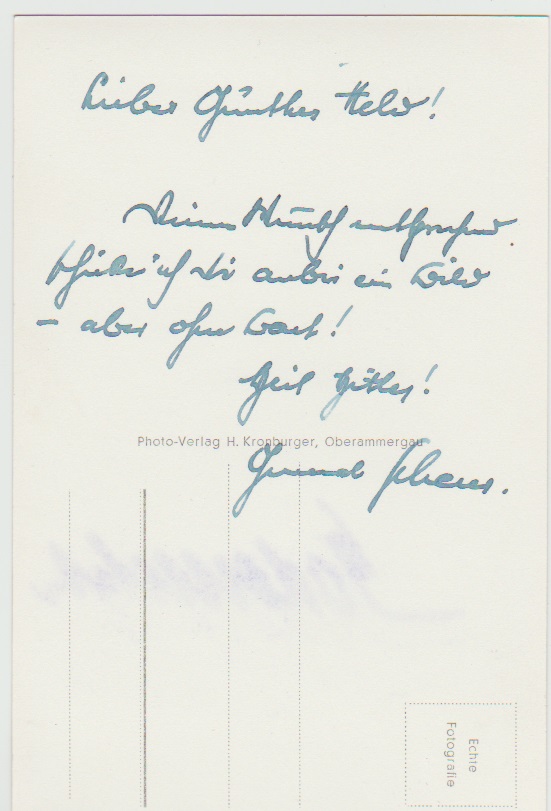 Lieber Günther Held!
Deinem Wunsch entsprechend
schicke ich Dir anbei ein Bild
- aber ohne Bart!
Heil Hitler!
Photo-Verlag H. Kronburger, Oberammergau
Echte
Fotografie